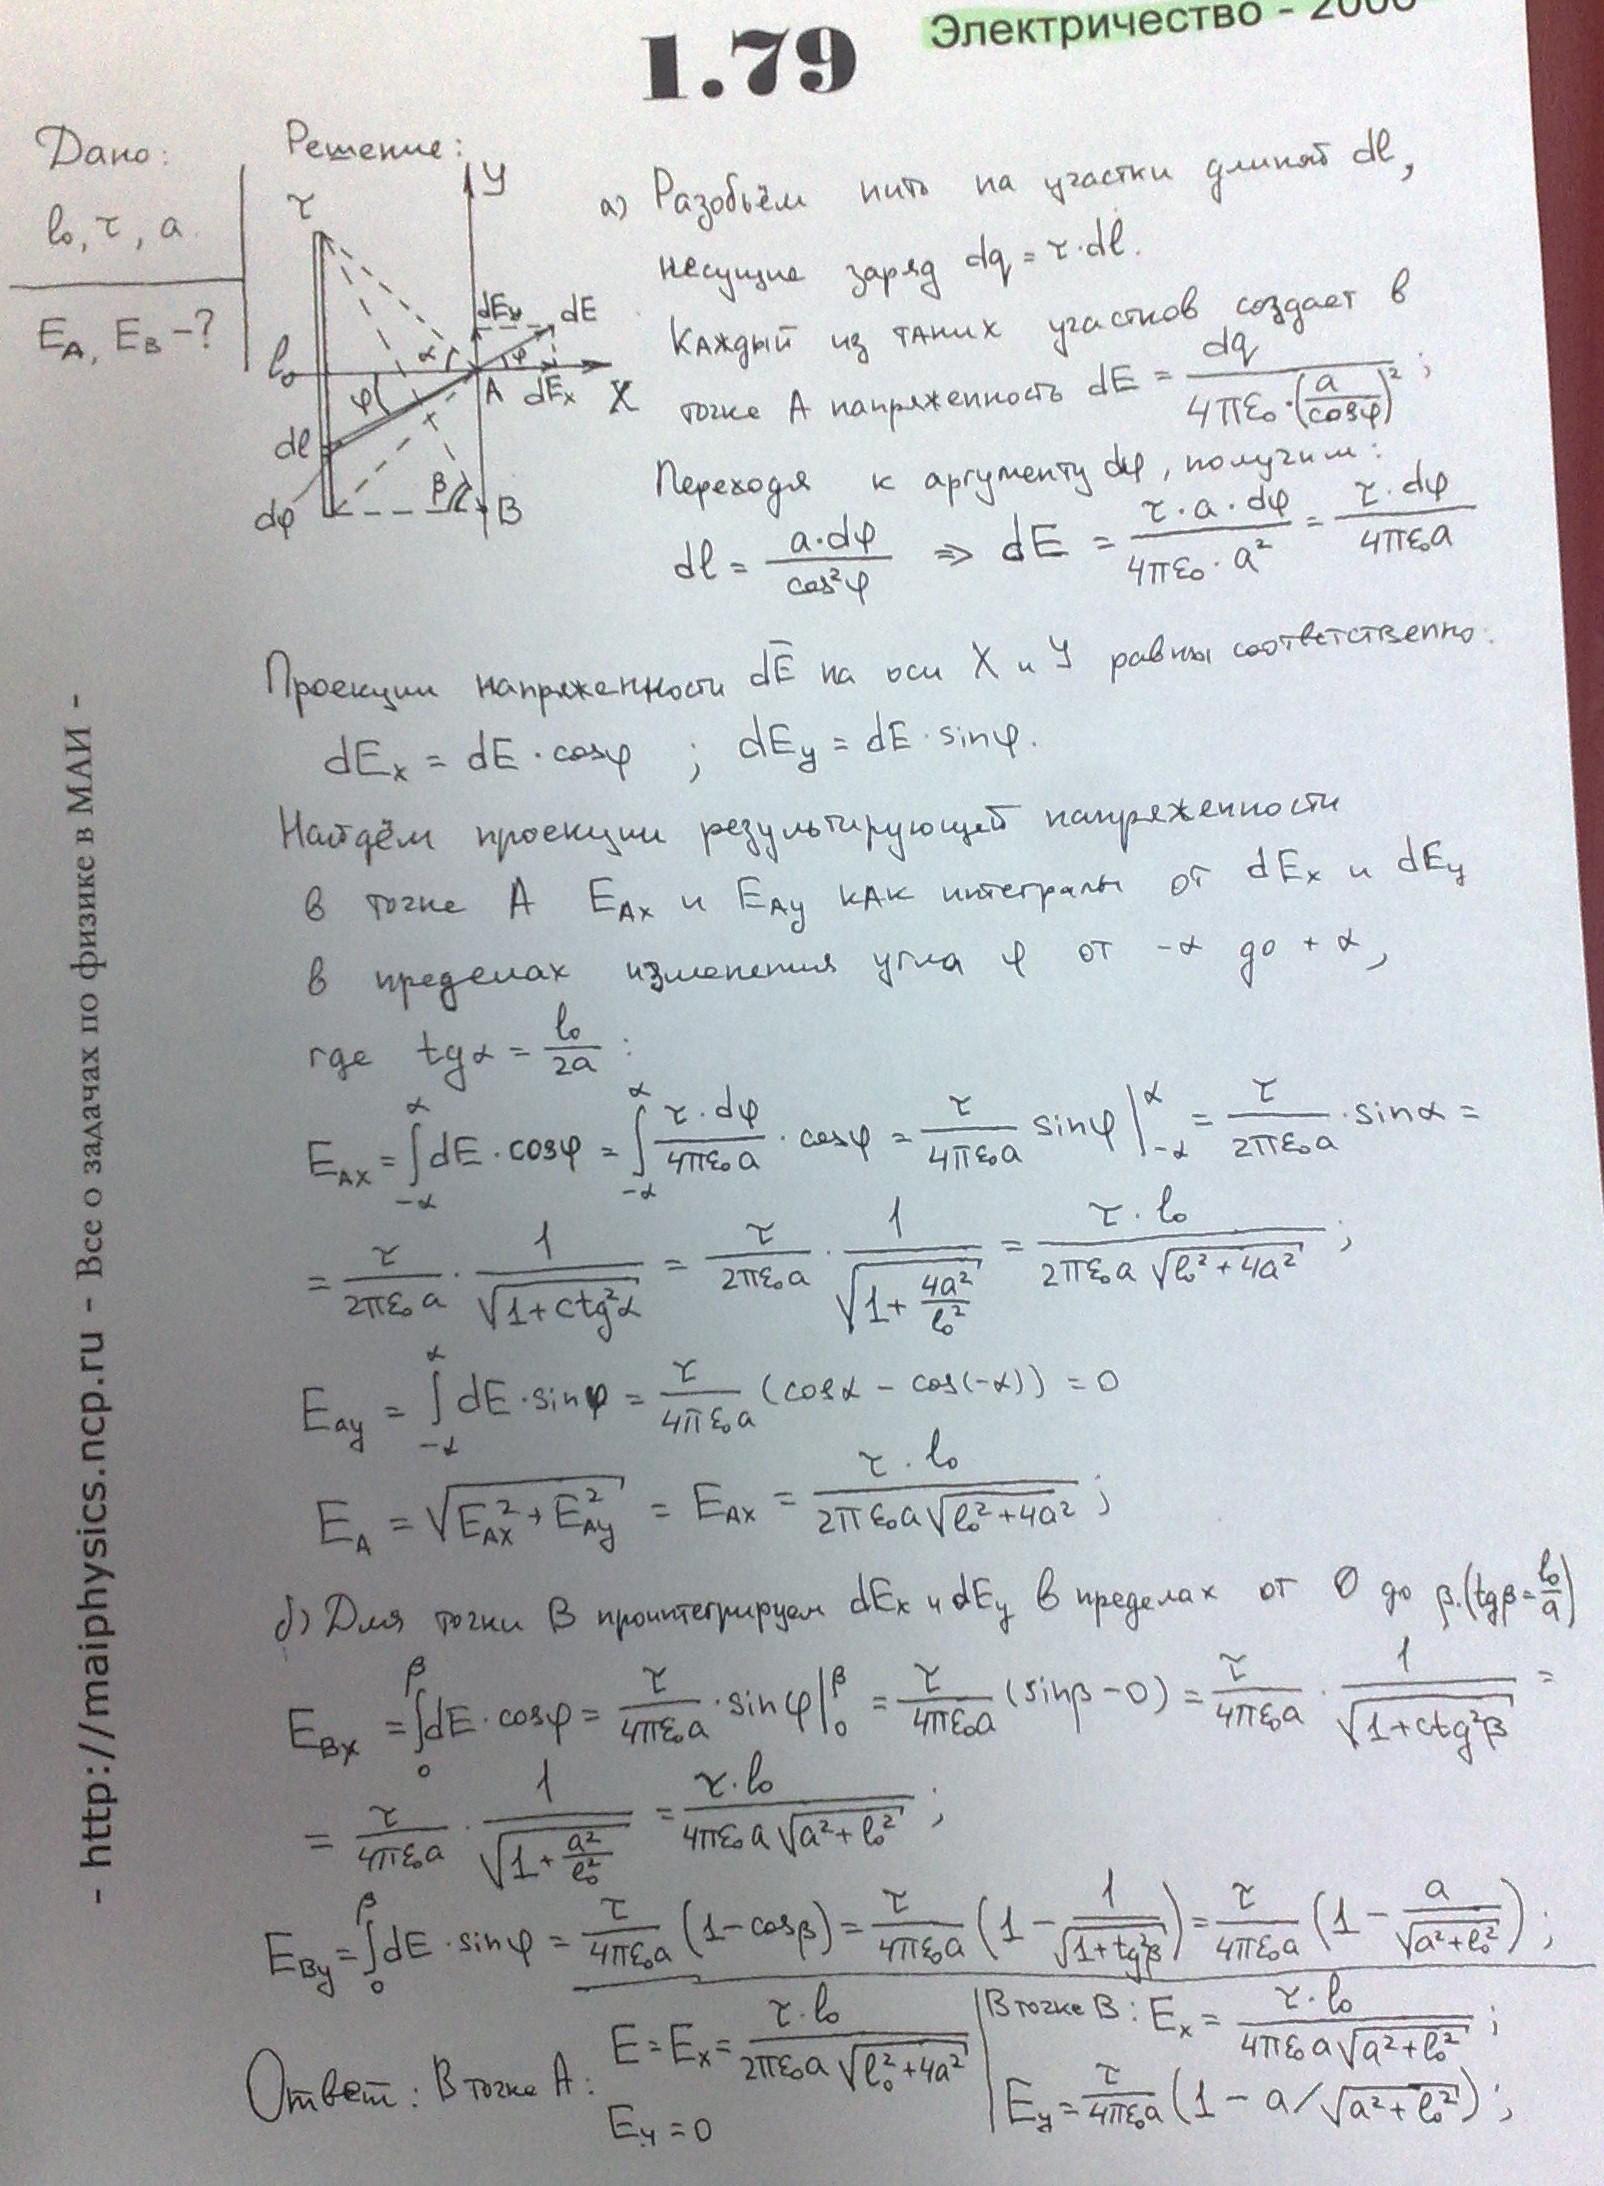 1.79
Электричество - 2006
Дано:
l₀, τ, a.
E_A, E_B - ?
Решение:
τ
Y
dE_y
dE
α
φ
l₀
φ
A
dE_x
X
dl
β
dφ
B
а) Разобьём нить на участки длиной dl,
несущие заряд dq = τ·dl.
Каждый из таких участков создает в
точке A напряженность dE = dq / (4πε₀·(a/cosφ)²);
Переходя к аргументу dφ, получим:
dl = a·dφ / cos²φ ⇒ dE = τ·a·dφ / (4πε₀·a²) = τ·dφ / (4πε₀a)
Проекции напряженности dE̅ на оси X и Y равны соответственно:
dE_x = dE·cosφ ; dE_y = dE·sinφ.
Найдём проекции результирующей напряженности
в точке A E_Ax и E_Ay как интегралы от dE_x и dE_y
в пределах изменения угла φ от -α до +α,
где tgα = l₀/2a :
E_Ax = ∫_{-α}^{α} dE·cosφ = ∫_{-α}^{α} τ·dφ/(4πε₀a)·cosφ = τ/(4πε₀a) sinφ|_{-α}^{α} = τ/(2πε₀a)·sinα =
= τ/(2πε₀a)·1/√(1+ctg²α) = τ/(2πε₀a)·1/√(1+4a²/l₀²) = τ·l₀/(2πε₀a√(l₀²+4a²));
E_ay = ∫_{-α}^{α} dE·sinφ = τ/(4πε₀a)(cosα - cos(-α)) = 0
E_A = √(E_Ax² + E_Ay²) = E_Ax = τ·l₀/(2πε₀a√(l₀²+4a²));
б) Для точки B проинтегрируем dE_x и dE_y в пределах от 0 до β.(tgβ = l₀/a)
E_Bx = ∫_{0}^{β} dE·cosφ = τ/(4πε₀a)·sinφ|_{0}^{β} = τ/(4πε₀a)(sinβ - 0) = τ/(4πε₀a)·1/√(1+ctg²β) =
= τ/(4πε₀a)·1/√(1+a²/l₀²) = τ·l₀/(4πε₀a√(a²+l₀²));
E_By = ∫_{0}^{β} dE·sinφ = τ/(4πε₀a)(1-cosβ) = τ/(4πε₀a)(1 - 1/√(1+tg²β)) = τ/(4πε₀a)(1 - a/√(a²+l₀²));
Ответ: В точке A: E = E_x = τ·l₀/(2πε₀a√(l₀²+4a²))
E_y = 0
В точке B: E_x = τ·l₀/(4πε₀a√(a²+l₀²));
E_y = τ/(4πε₀a)(1 - a/√(a²+l₀²));
- http://maiphysics.ncp.ru - Все о задачах по физике в МАИ -